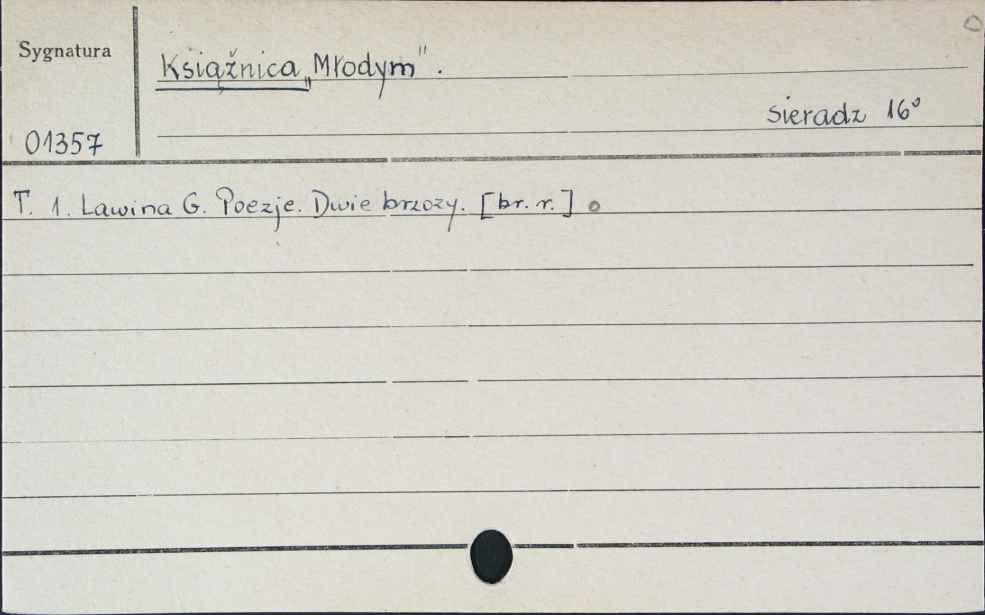 Sygnatura
Książnica „Młodym”.
Sieradz 16°
01357
T. 1. Lawina G. Poezje. Dwie brzozy. [br. r.]